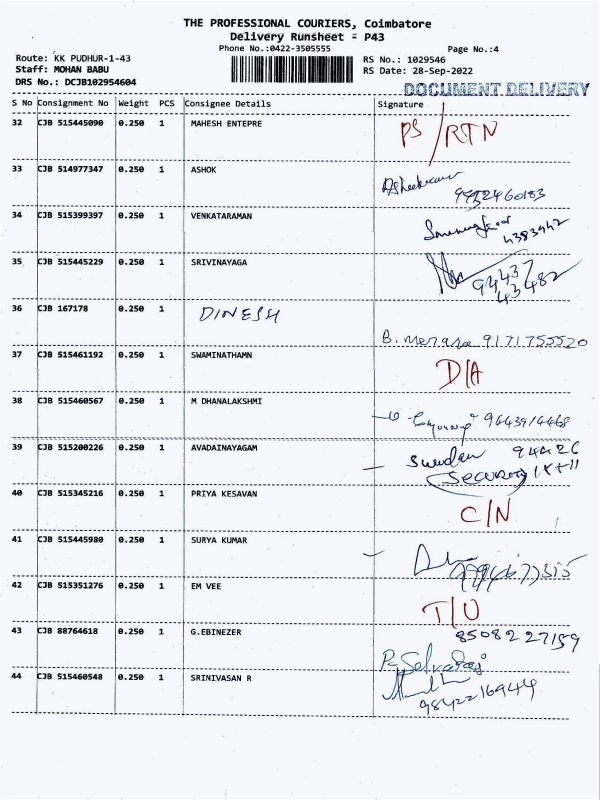 THE PROFESSIONAL COURIERS, Coimbatore
Delivery Runsheet - P43
Phone No.:0422-3505555
Page No.:4
Route: KK PUDHUR-1-43
RS No.: 1029546
Staff: MOHAN BABU
RS Date: 28-Sep-2022
DRS No.: DCJB102954604
DOCUMENT DELIVERY
S No Consignment No Weight PCS Consignee Details Signature
32 CJB 515445090 0.250 1 MAHESH ENTEPRE PS/RTN
33 CJB 514977347 0.250 1 ASHOK
34 CJB 515399397 0.250 1 VENKATARAMAN 4383942
35 CJB 515445229 0.250 1 SRIVINAYAGA 94437
43482
36 CJB 167178 0.250 1 DINESH
B. Menaka 9171755520
37 CJB 515461192 0.250 1 SWAMINATHAMN D/A
38 CJB 515460567 0.250 1 M DHANALAKSHMI 9443914468
39 CJB 515200226 0.250 1 AVADAINAYAGAM 94426
Security
40 CJB 515345216 0.250 1 PRIYA KESAVAN C/N
41 CJB 515445980 0.250 1 SURYA KUMAR
42 CJB 515351276 0.250 1 EM VEE T/U
43 CJB 88764618 0.250 1 G.EBINEZER 8508227159
P. Selvaraj
44 CJB 515460548 0.250 1 SRINIVASAN R 9842216944